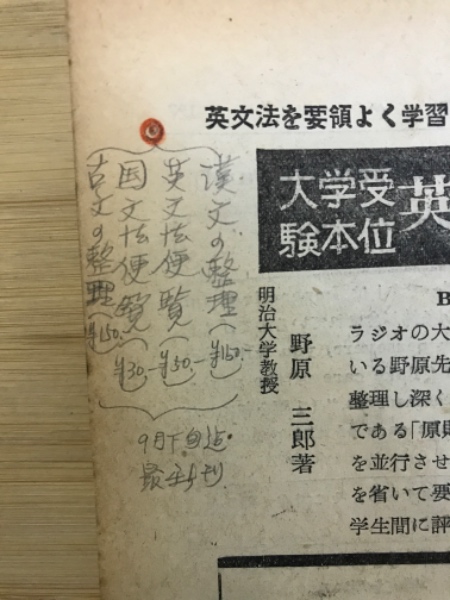 英文法を要領よく学習
大学受
験本位
英
B
明治大学教授
野原三郎著
ラジオの大
いる野原先
整理し深く
である「原則
を並行させ
を省いて要
学生間に評
漢文の整理(¥150.-)
英文法便覧(¥50.-)
国文法便覧(¥30.-)
古文の整理(¥150.-)
9月下旬